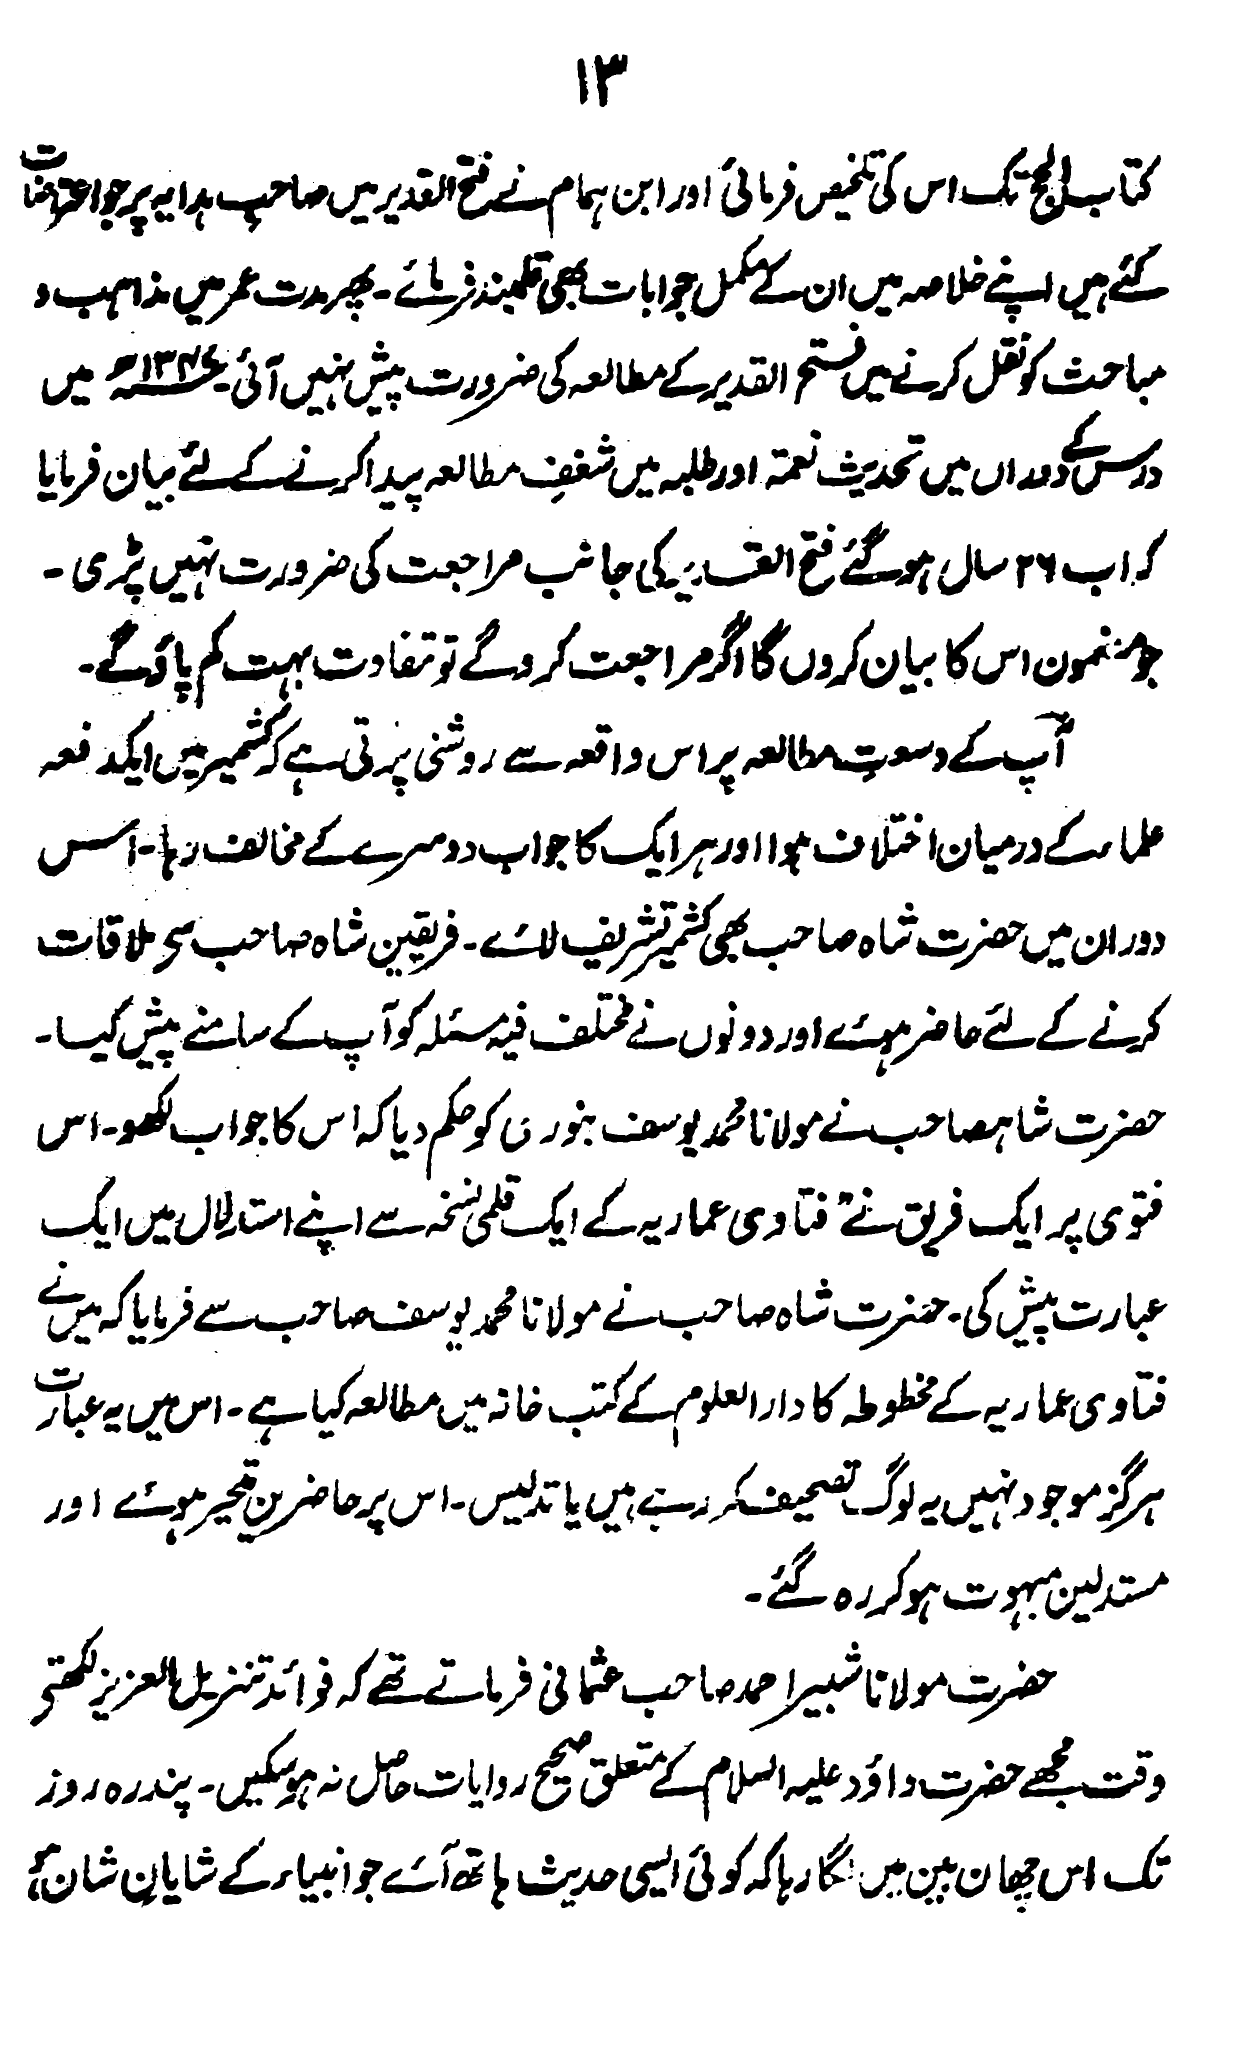 ۱۳
کتاب الحج تک اس کی تلخیص فرمائی اور ابن ہمام نے فتح القدیر میں صاحبِ ہدایہ پر جو اعتراضات
کئے ہیں اپنے خلاصہ میں ان کے مکمل جوابات بھی قلمبند فرمائے۔ پھر مدت عمر میں مذاہب و
مباحث کو نقل کرنے میں فتح القدیر کے مطالعہ کی ضرورت پیش نہیں آئی۔ میں
درس کے دوراں میں تحدیث نعمۃ اور طلبہ میں شغفِ مطالعہ پیدا کرنے کے لئے بیان فرمایا
کہ اب ۲۶ سال ہو گئے فتح القدیر کی جانب مراجعت کی ضرورت نہیں پڑی۔
جو مضمون اس کا بیان کروں گا اگر مراجعت کرو گے تو تفاوت بہت کم پاؤ گے۔
آپؒ کے وسعتِ مطالعہ پر اس واقعہ سے روشنی پڑتی ہے کہ کشمیر میں ایک دفعہ
علماء کے درمیان اختلاف ہوا اور ہر ایک کا جواب دوسرے کے مخالف رہا۔ اس
دوران میں حضرت شاہ صاحب بھی کشمیر تشریف لائے۔ فریقین شاہ صاحب سے ملاقات
کرنے کے لئے حاضر ہوئے اور دونوں نے مختلف فیہ مسئلہ کو آپ کے سامنے پیش کیا۔
حضرت شاہصاحب نے مولانا محمد یوسف بنوری کو حکم دیا کہ اس کا جواب لکھو۔ اس
فتوی پر ایک فریق نے ” فتاوی عماریہ کے ایک قلمی نسخہ سے اپنے استدلال میں ایک
عبارت پیش کی۔ حضرت شاہ صاحب نے مولانا محمد یوسف صاحب سے فرمایا کہ میں نے
فتاوی عماریہ کے مخطوطہ کا دار العلوم کے کتب خانہ میں مطالعہ کیا ہے۔ اس میں یہ عبارت
ہرگز موجود نہیں یہ لوگ تصحیف کر رہے ہیں یا تدلیس۔ اس پر حاضرین متحیر ہوئے اور
مستدلین مبہوت ہو کر رہ گئے۔
حضرت مولانا شبیر احمد صاحب عثمانی فرماتے تھے کہ فوائد تنزیل العزیز لکھتے
وقت مجھے حضرت داؤد علیہ السلام کے متعلق صحیح روایات حاصل نہ ہو سکیں۔ پندرہ روز
تک اس چھان بین میں لگا رہا کہ کوئی ایسی حدیث ہاتھ آئے جو انبیاء کے شایانِ شان ہو